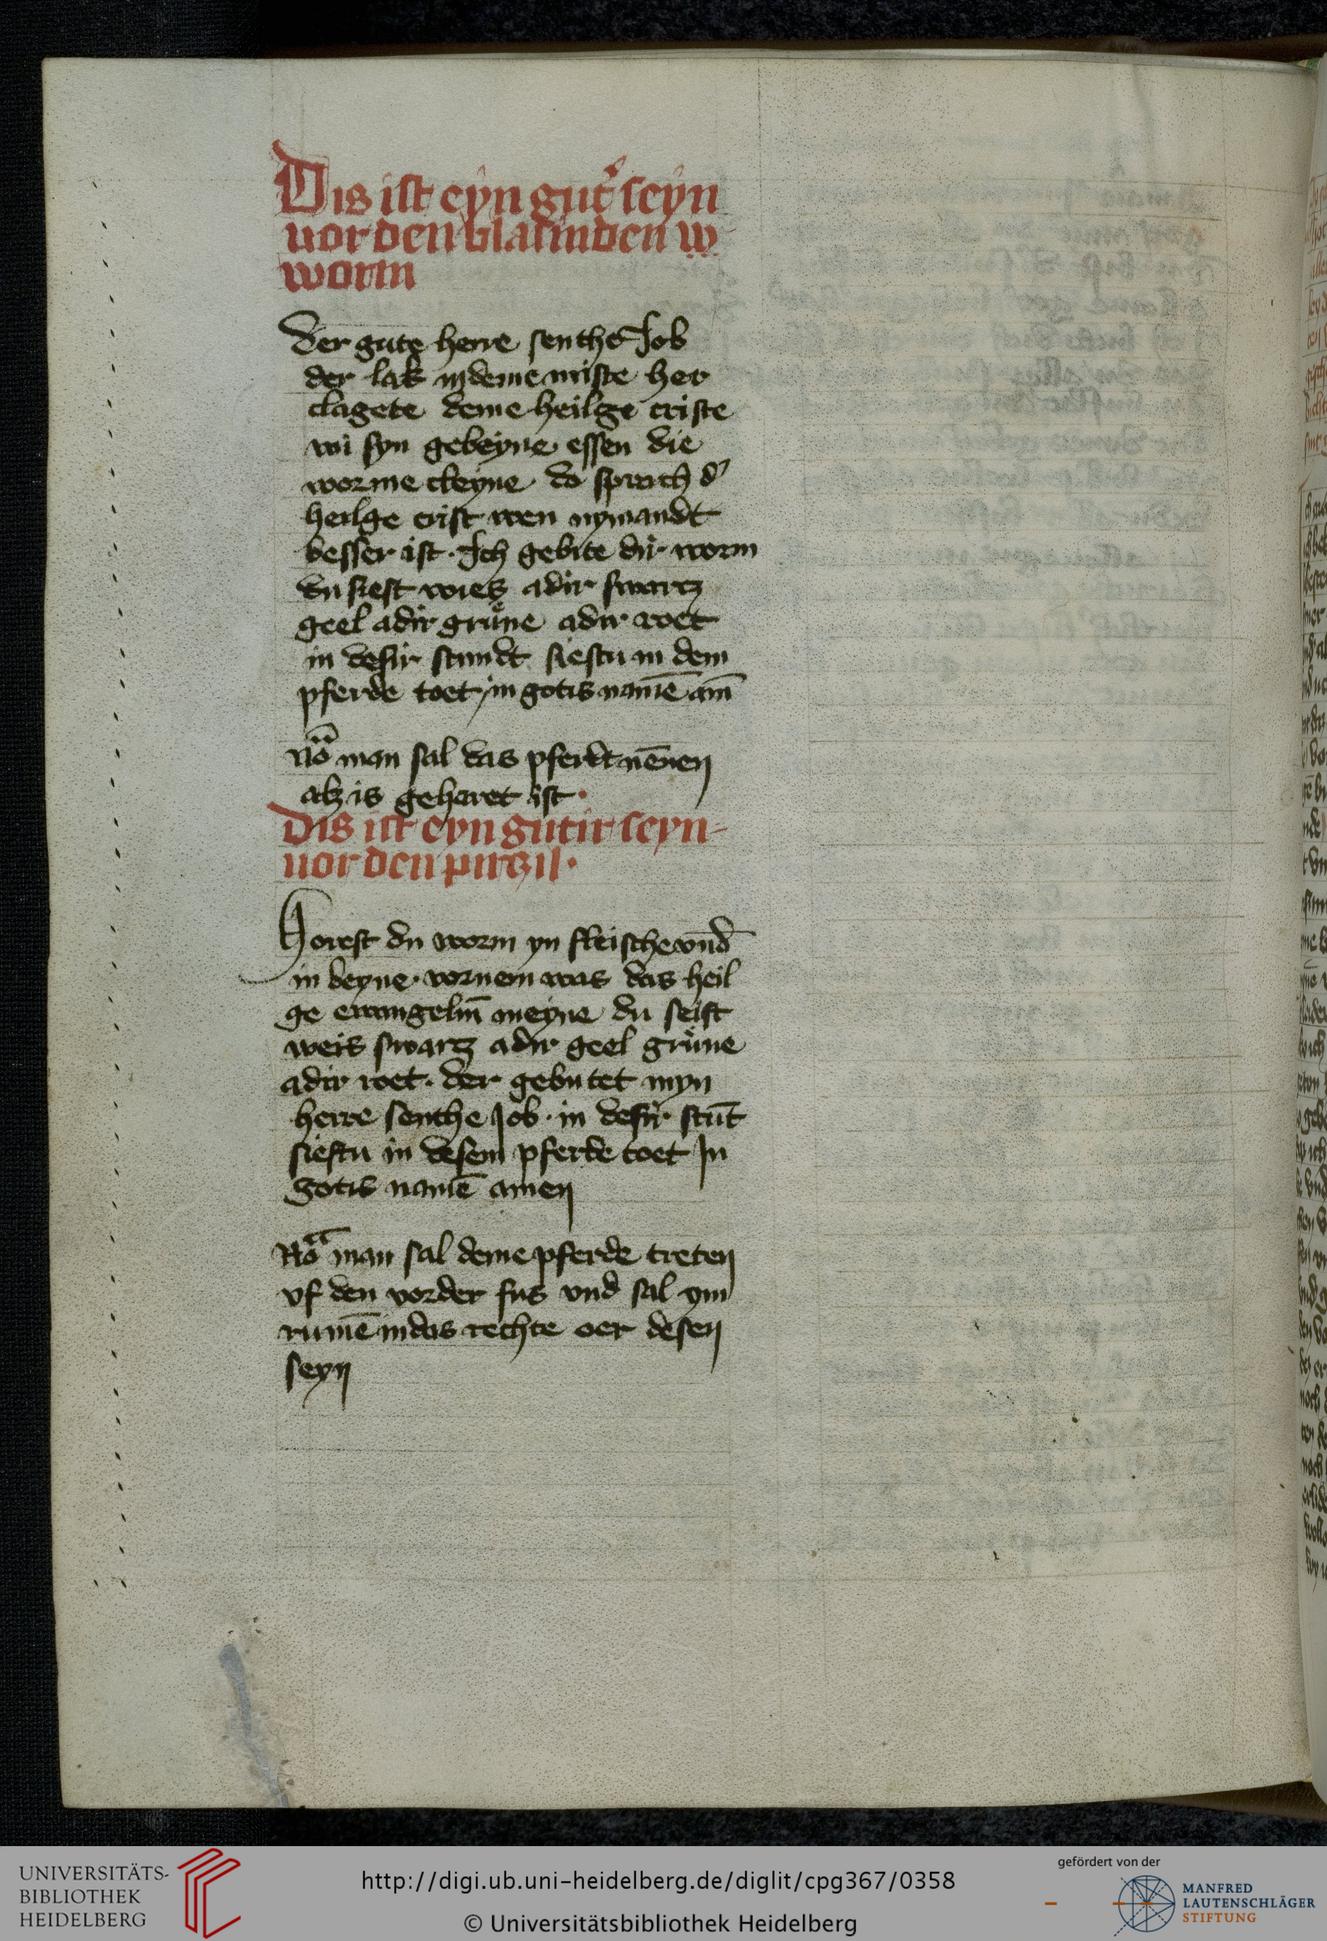 Dis ist eyn gut' seyn
vor den blasinden w
worm
Der gute herre senthe Job
der lak in deme miste her
clagete deme heilge criste
wi syn gebeyne essen die
worme cleyne do sprach d'
heilge crist wen nymandt
besser ist · Ich gebite dir worm
du siest wies adir swartz
geel adir grune adir roet
in desir stundt siestu in dem
pferde toet in gotis namē am̄
Noᷓ man sal das pferdt nēnen
alz is geharet ist ·
Dis ist eyn gutir seyn
vor den pirczil ·
Horest du worm yn fleische vnd̄
in beyne · vornem was das heil
ge ewangeliū meyne du seist
weis swartz adir geel grune
adir roet · der gebutet myn
herre senthe Job · in desir stūt
siestu in desem pferde toet In
gotis namē amen
Noᷓ man sal deme pferde treten
vf den vorder fus vnd sal ym
rumē in das rechte oer desen
seyn
UNIVERSITÄTS-
BIBLIOTHEK
HEIDELBERG
http://digi.ub.uni-heidelberg.de/diglit/cpg367/0358
© Universitätsbibliothek Heidelberg
gefördert von der
MANFRED
LAUTENSCHLÄGER
STIFTUNG